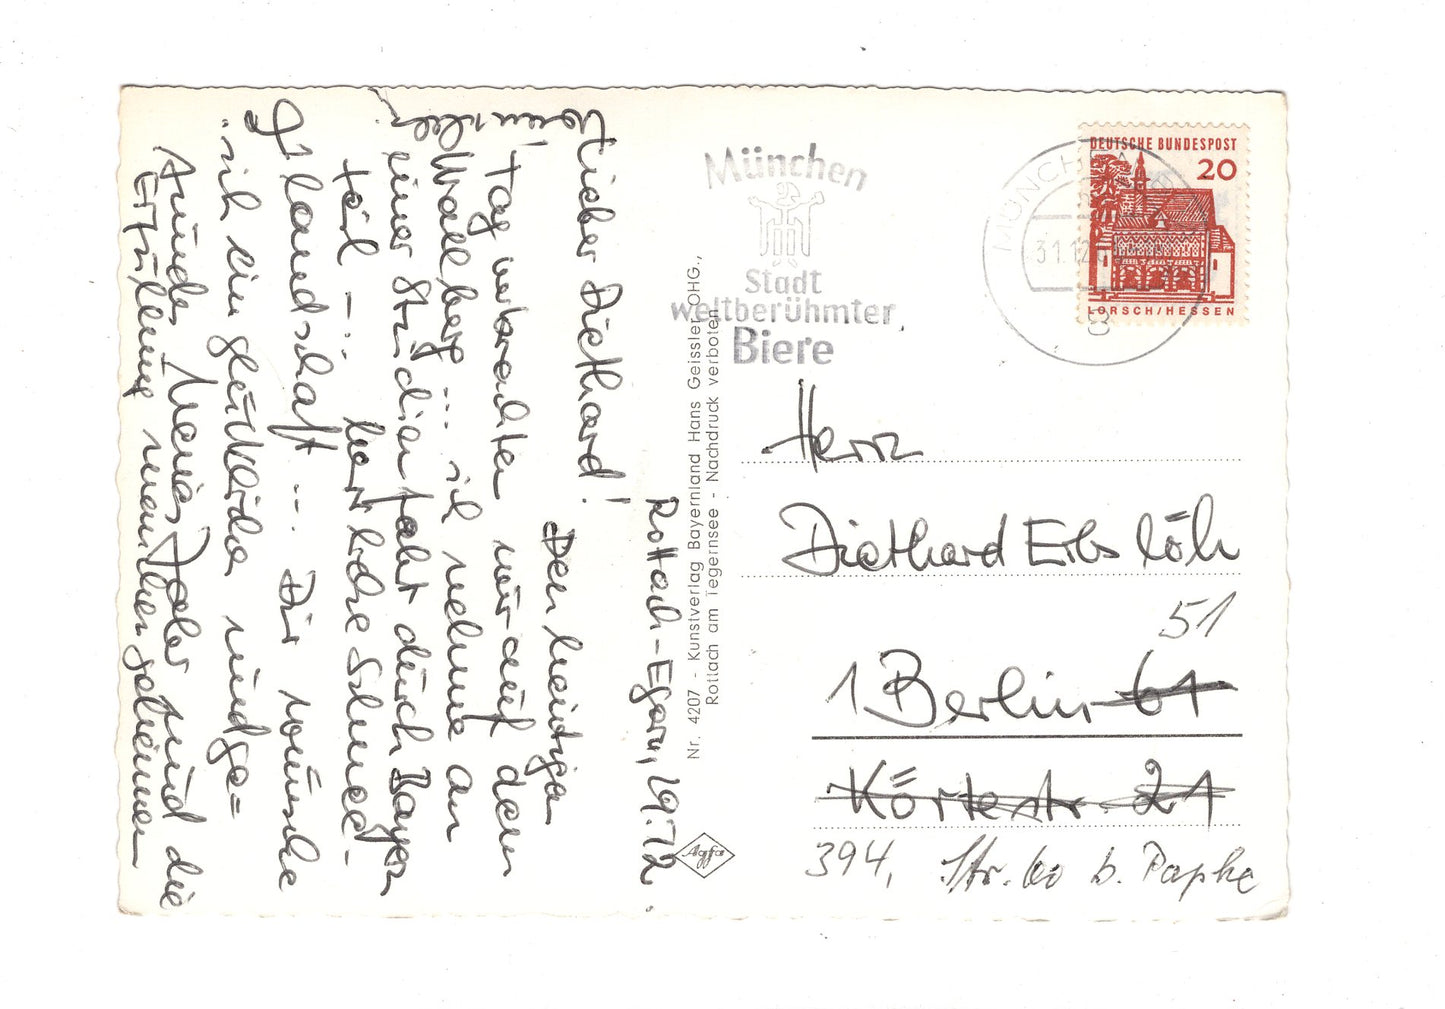 Rottach-Egern, 29.12.
Lieber Diethard!
Den heutigen
Tag verbrachten wir auf dem
Wallberg ... ich nehme an
einer Studienfahrt durch Bayern
teil - ... herrliche Schnee-
landschaft ... Dir wünsche
ich ein glückliches und ge=
sundes Neues Jahr und die
Erfüllung mancher geheimer
Nr. 4207 - Kunstverlag Bayernland Hans Geissler OHG.,
Rottach am Tegernsee - Nachdruck verboten
Agfa
München
Stadt
weltberühmter
Biere
MÜNCHEN
31.12.
8
DEUTSCHE BUNDESPOST
20
LORSCH/HESSEN
Herrn
Diethard Erbslöh
51
1 Berlin 61
Körtestr. 21
394, Str. 60 b. Papke